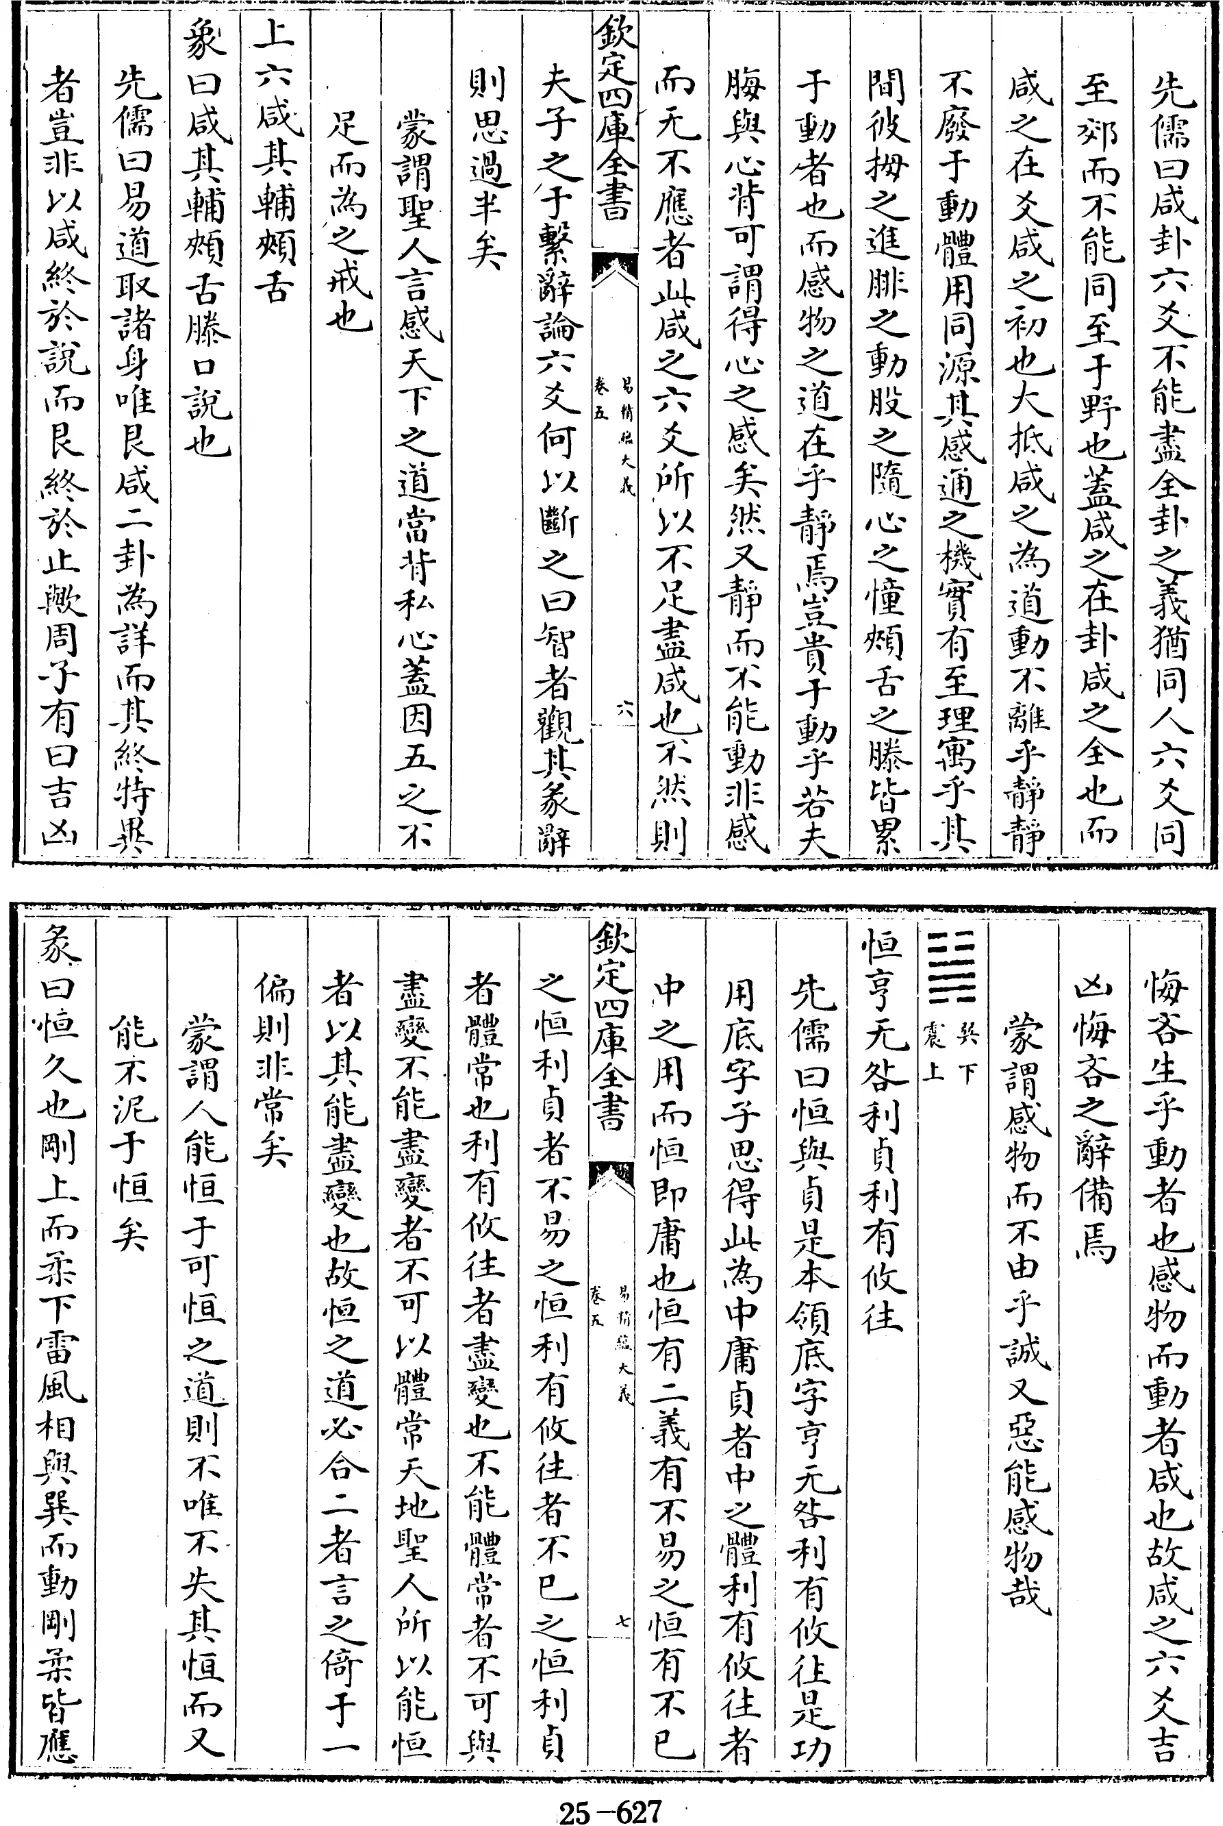 先儒曰咸卦六爻不能盡全卦之義猶同人六爻同
至郊而不能同至于野也蓋咸之在卦咸之全也而
咸之在爻咸之初也大抵咸之為道動不離乎靜靜
不廢于動體用同源其感通之機實有至理寓乎其
間彼拇之進腓之動股之隨心之憧頰舌之滕皆累
于動者也而感物之道在乎靜焉豈貴于動乎若夫
脢與心背可謂得心之感矣然又靜而不能動非感
而无不應者此咸之六爻所以不足盡咸也不然則
欽定四庫全書
易精蘊大義
卷五
六
夫子之于繫辭論六爻何以斷之曰智者觀其彖辭
則思過半矣
蒙謂聖人言感天下之道當背私心蓋因五之不
足而為之戒也
上六咸其輔頰舌
象曰咸其輔頰舌滕口說也
先儒曰易道取諸身唯艮咸二卦為詳而其終特異
者豈非以咸終於說而艮終於止歟周子有曰吉凶
悔吝生乎動者也感物而動者咸也故咸之六爻吉
凶悔吝之辭備焉
蒙謂感物而不由乎誠又惡能感物哉
巽下
震上
恒亨无咎利貞利有攸往
先儒曰恒與貞是本領底字亨无咎利有攸往是功
用底字子思得此為中庸貞者中之體利有攸往者
中之用而恒即庸也恒有二義有不易之恒有不已
欽定四庫全書
易精蘊大義
卷五
七
之恒利貞者不易之恒利有攸往者不已之恒利貞
者體常也利有攸往者盡變也不能體常者不可與
盡變不能盡變者不可以體常天地聖人所以能恒
者以其能盡變也故恒之道必合二者言之倚于一
偏則非常矣
蒙謂人能恒于可恒之道則不唯不失其恒而又
能不泥于恒矣
彖曰恒久也剛上而柔下雷風相與巽而動剛柔皆應
25-627